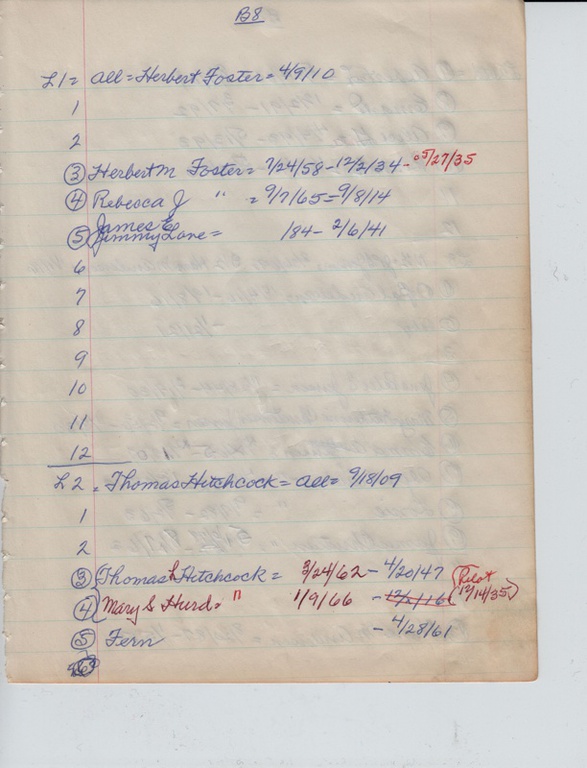 B8
L1 = All = Herbert Foster = 4/9/10
1
2
③ Herbert M Foster = 7/24/58 - 12/2/34 - 05/27/35
④ Rebecca J " = 9/7/65 = 9/8/14
James E
⑤ Jimmy Lane = /84 - 2/6/41
6
7
8
9
10
11
12
L2 = Thomas Hitchcock = All = 9/18/09
1
2
③ Thomas L Hitchcock = 3/24/62 - 4/20/47
④ Mary S Hurd = " 1/9/66 - 12/1/16 (Pilot 12/14/35)
⑤ Fern - 4/28/61